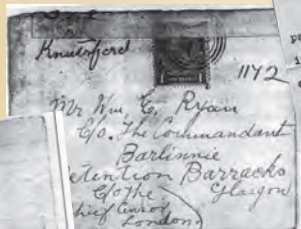 Knutsford
1172
Mr Wm. E. Ryan
C/o. The Commandant
Barlinnie
etention Barracks
C/o The Glasgow
hief Censor
London